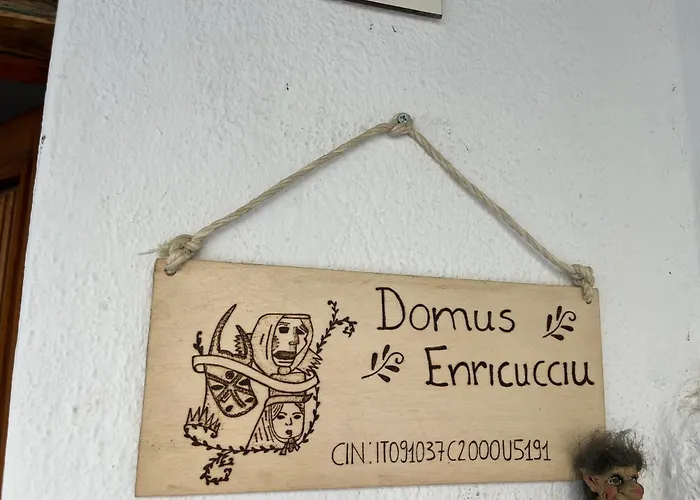 Domus
Enricucciu
CIN:IT091037C2000U5191